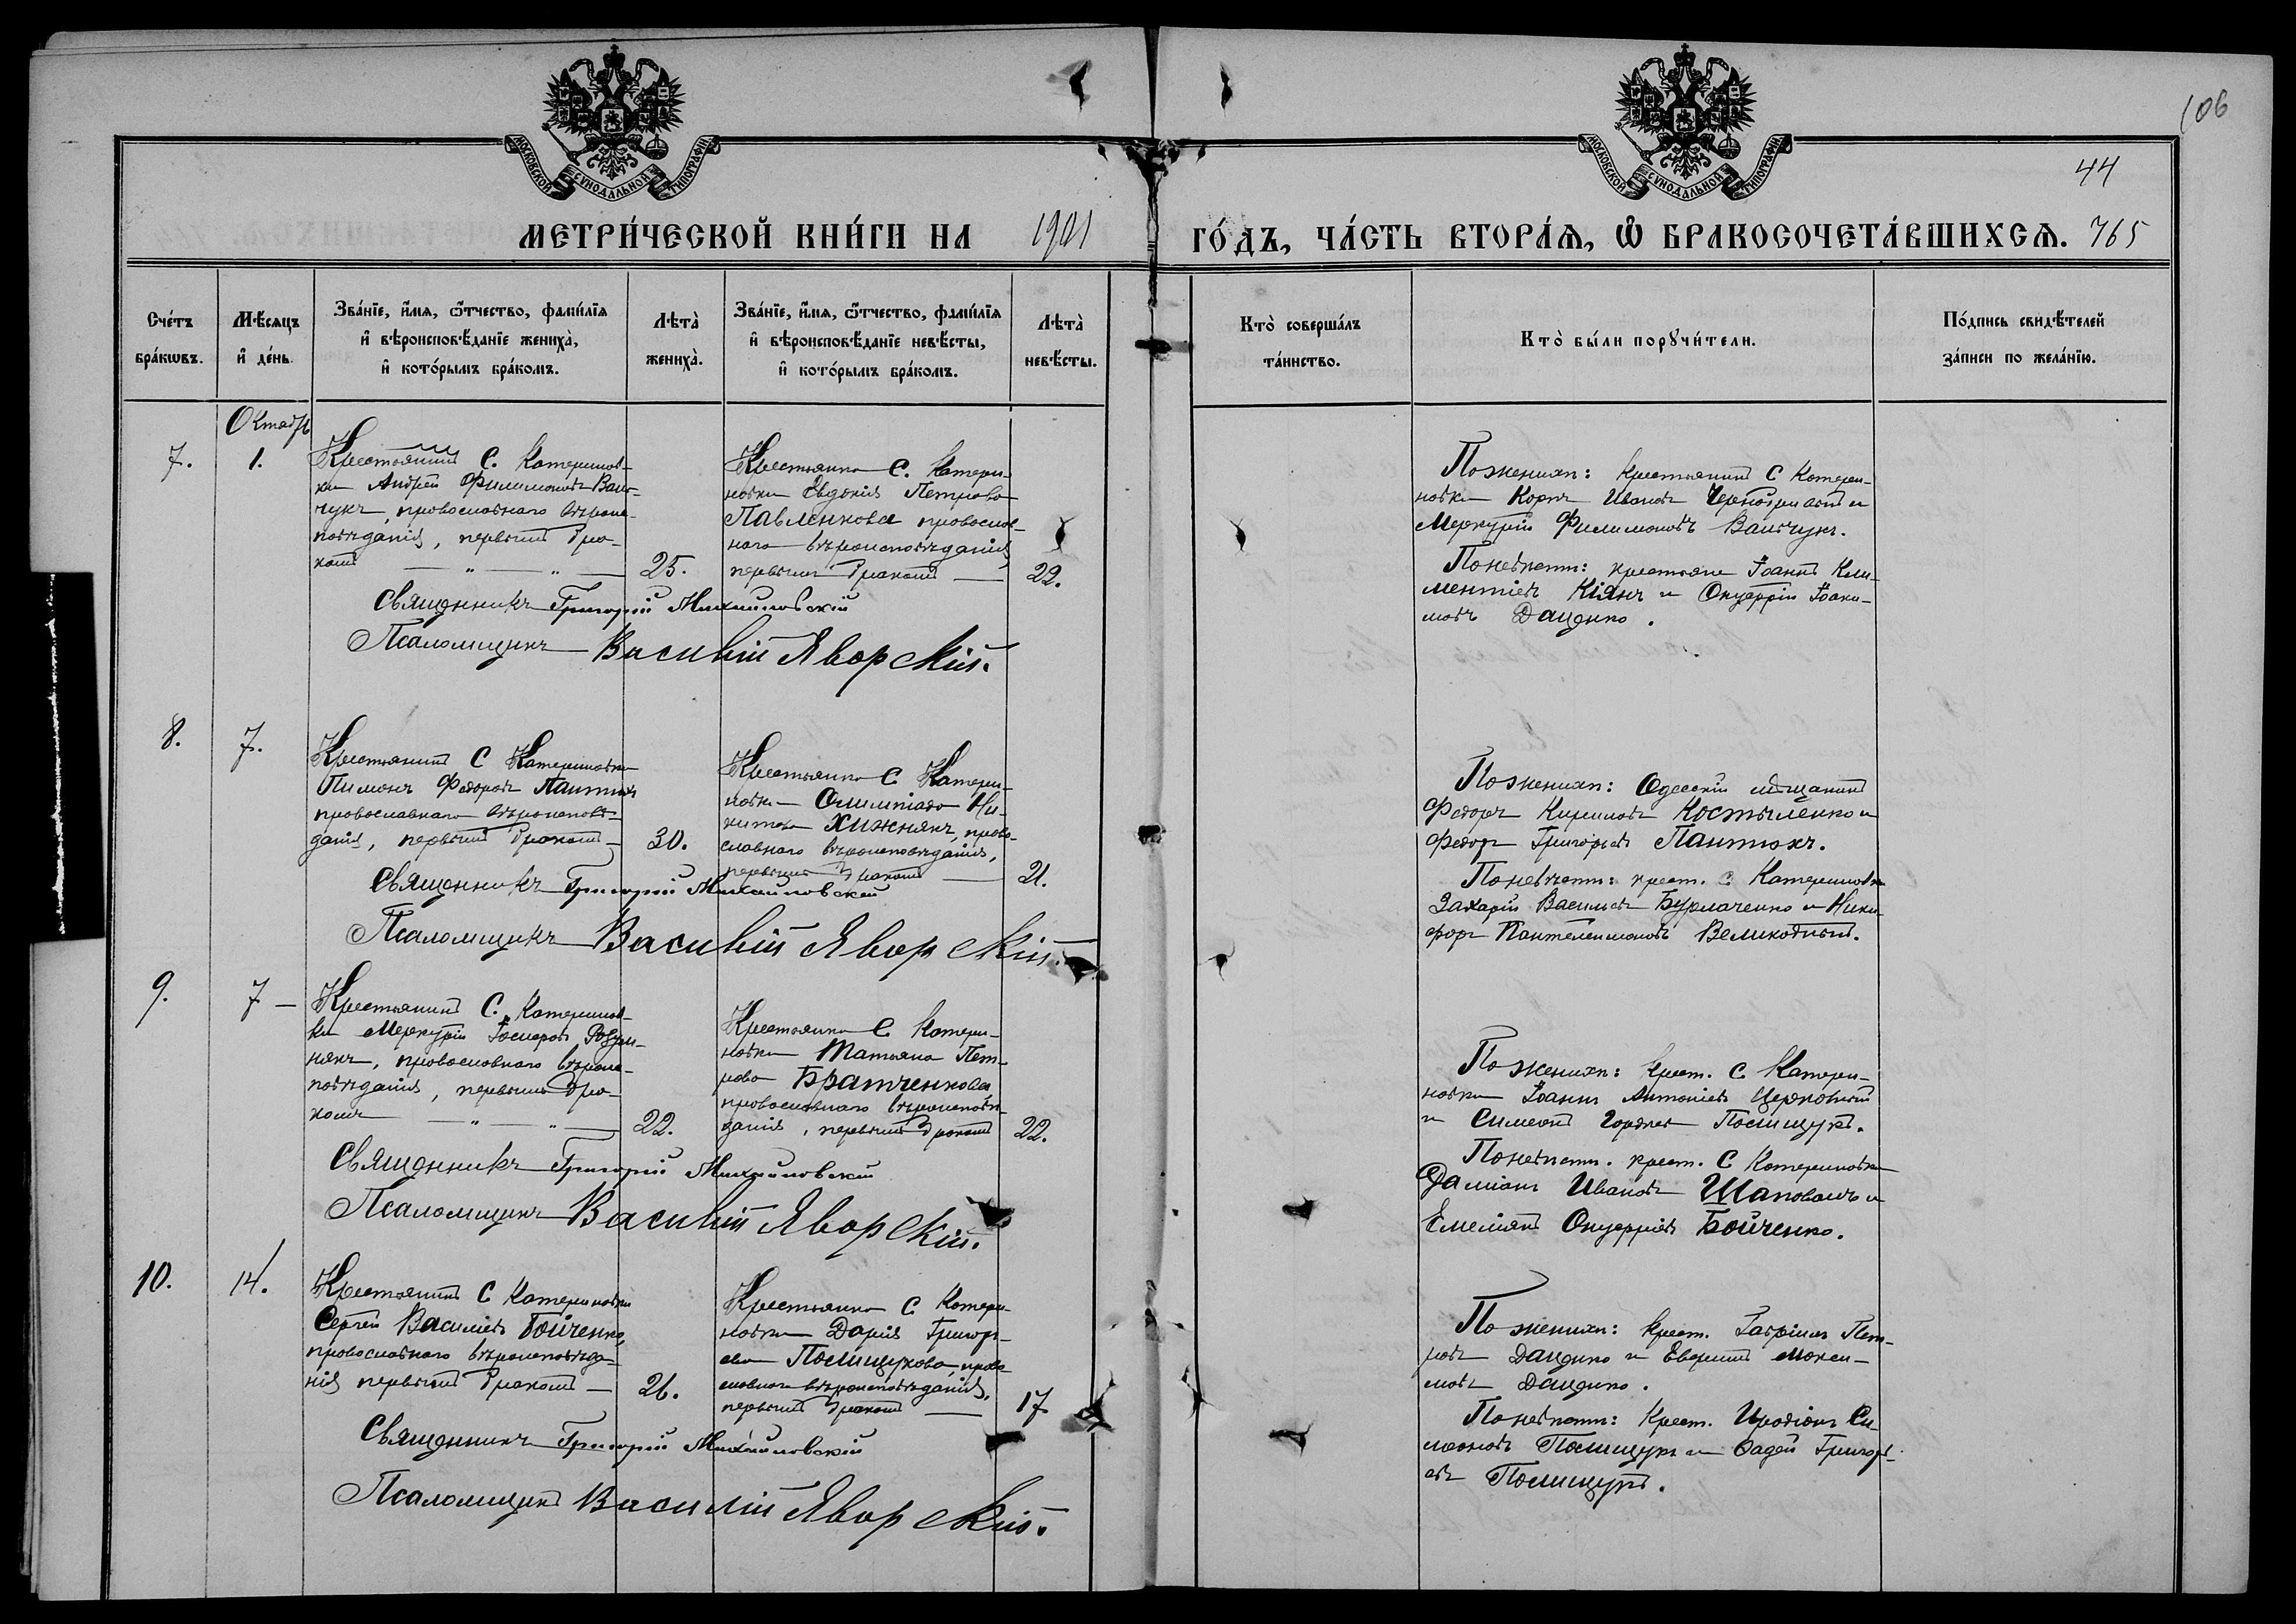 106
44
МОСКОВСКОЙ СУНОДАЛЬНОЙ ТИПОГРАФІИ
МОСКОВСКОЙ СУНОДАЛЬНОЙ ТИПОГРАФІИ
МЕТРИ́ЧЕСКОЙ КНИ́ГИ НА 1901 ГО́ДЪ, ЧА́СТЬ ВТОРА́Ѧ, Ѽ БРАКОСОЧЕТА́ВШИХСѦ. 765
Сче́тъ бра́кωвъ.
Мѣ́сяцъ и҆ де́нь.
Зва́нїе, и҆́мя, ѻ҆́тчество, фами́лїя
и҆ вѣроисповѣ́данїе жениха̀,
и҆ кото́рымъ бра́комъ.
Лѣта̀ жениха̀.
Зва́нїе, и҆́мя, ѻ҆́тчество, фами́лїя
и҆ вѣроисповѣ́данїе невѣ́сты,
и҆ кото́рымъ бра́комъ.
Лѣта̀ невѣ́сты.
Кто̀ соверша́лъ
та́инство.
Кто̀ бы́ли порꙋчи́тели.
По́дпись свидѣ́телей
за́писи по жела́нїю.
Октябрь
7.
1.
Крестьянинъ с. Катеринов-
ки Андрей Филимоновъ Ваш-
чукъ, православнаго вѣроис-
повѣданія, первымъ бра-
комъ
25.
Крестьянка с. Катери-
новки Евдокія Петрова
Павленкова православ-
наго вѣроисповѣданія
первымъ бракомъ
22.
Священникъ Григорій Михайловскій
Псаломщикъ Василій Яворскій.
По женихѣ: крестьянинъ с Катери-
новки Карпъ Ивановъ и
Меркурій Филимоновъ Вашчукъ.
По невѣстѣ: крестьяне Іоаннъ Кли-
ментіевъ Кіянъ и Онуфрій Іоаки-
мовъ Даценко.
8.
7.
Крестьянинъ с Катериновки
Пименъ Федоровъ Пантюхъ
православнаго вѣроисповѣ-
данія, первымъ бракомъ
30.
Крестьянка с Катери-
новки Олимпіада Ни-
китова Хижнякъ, право-
славнаго вѣроисповѣданія,
первымъ бракомъ
21.
Священникъ Григорій Михайловскій
Псаломщикъ Василій Яворскій.
По женихѣ: Одесскій мѣщанинъ
Федоръ Кириловъ Костыленко и
Федоръ Григорьевъ Пантюхъ.
По невѣстѣ: крест. с Катериновки
Захарій Васильевъ Бурлаченко и Ники-
форъ Пантелеимоновъ Великодный.
9.
7
Крестьянинъ с. Катеринов-
ки Меркурій
, православнаго вѣроис-
повѣданія, первымъ бра-
комъ
22.
Крестьянка с Катери-
новки Татьяна Пет-
рова Братченкова
православнаго вѣроисповѣ-
данія, первымъ бракомъ
22.
Священникъ Григорій Михайловскій
Псаломщикъ Василій Яворскій.
По женихѣ: крест. с Катери-
новки Іоаннъ Антоніевъ Церковный
и Симеонъ Полищукъ.
По невѣстѣ. крест. с Катериновки
Даміанъ Ивановъ Шаповалъ и
Емеліянъ Онуфріевъ Бойченко.
10.
14.
Крестьянинъ с Катериновки
Сергѣй Василіевъ Бойченко,
православнаго вѣроисповѣда-
нія первымъ бракомъ
26.
Крестьянка с Катери-
новки Дарія Григорь-
ева Полищукова, право-
славнаго вѣроисповѣданія,
первымъ бракомъ
17
Священникъ Григорій Михайловскій
Псаломщикъ Василій Яворскій.
По женихѣ: крест. Гавріилъ Пет-
ровъ Даценко и Макси-
мовъ Даценко.
По невѣстѣ: Крест. Иродіонъ Си-
меоновъ Полищукъ и Фадей Григорь-
евъ Полищукъ.